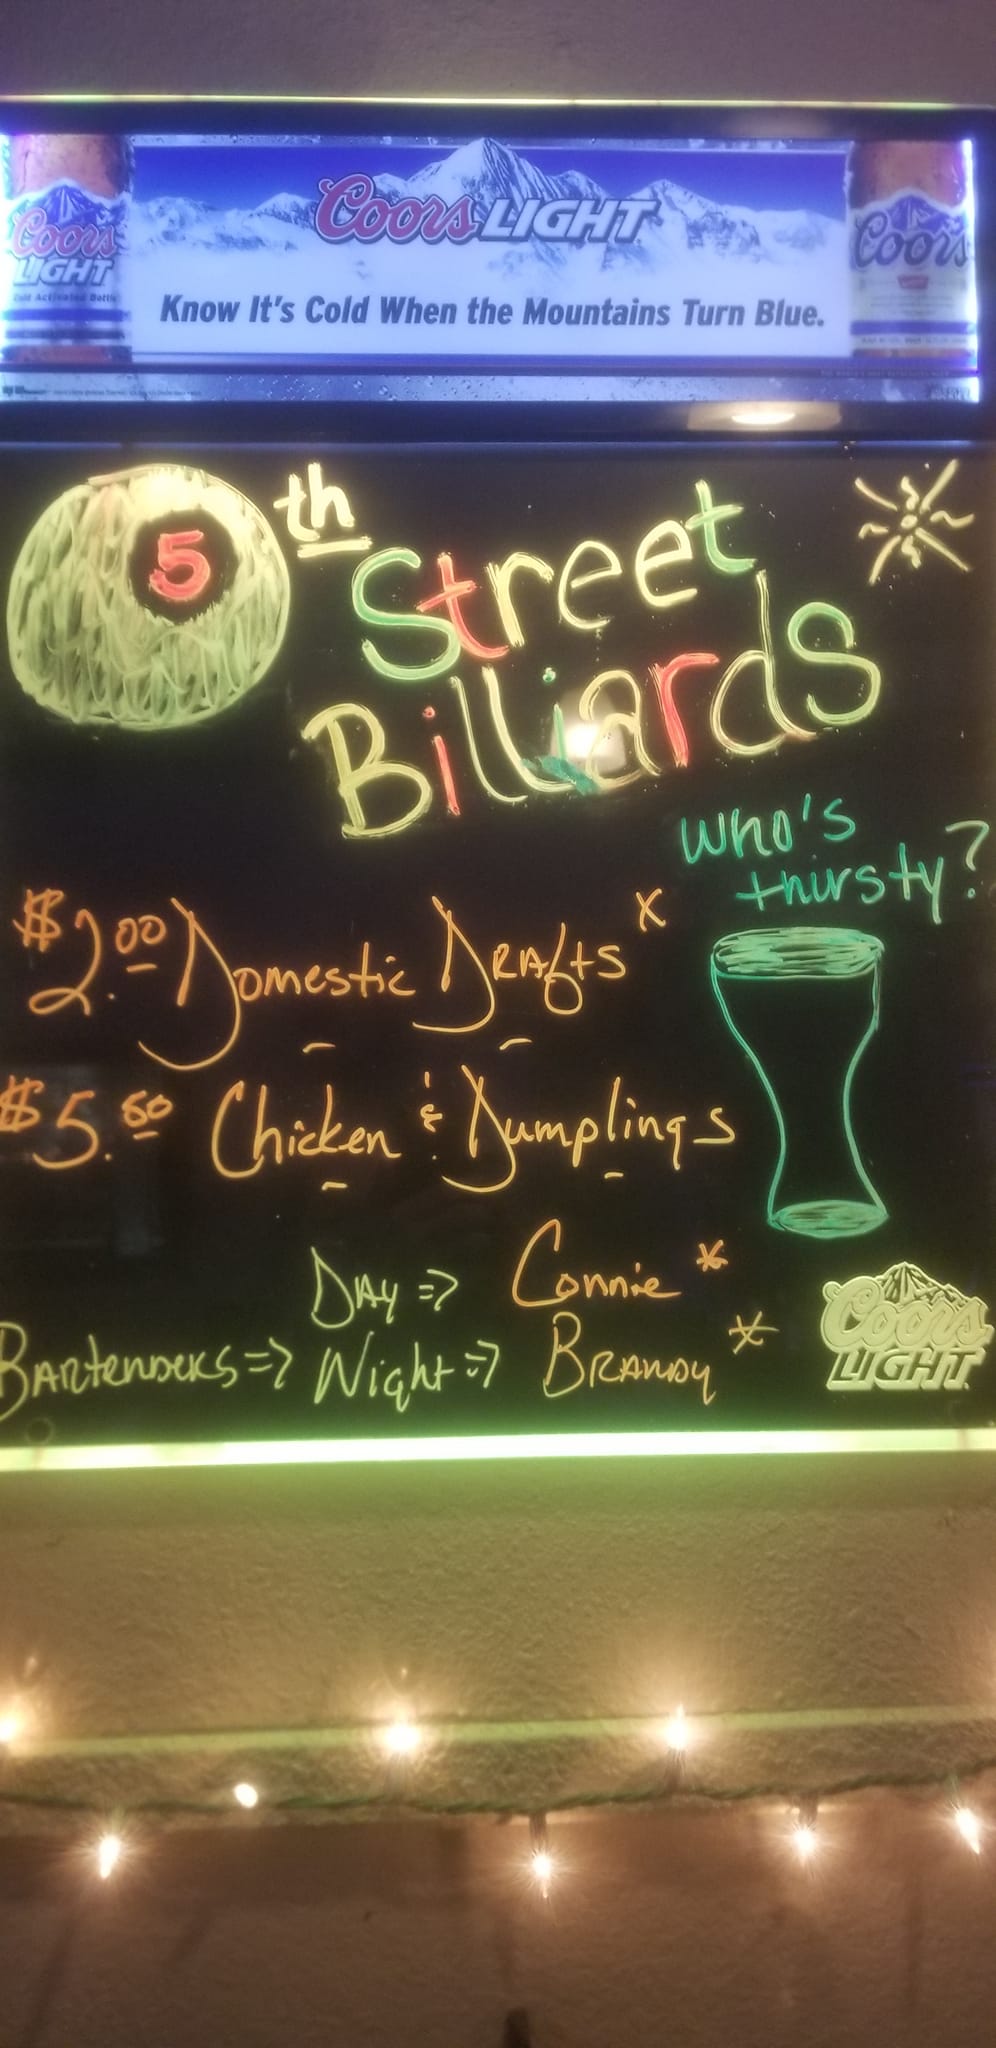 Coors LIGHT
Coors LIGHT
Coors
Cold Activated Bottle
Know It's Cold When the Mountains Turn Blue.
5th Street
Billiards
who's
thirsty?
$2.00 Domestic Drafts
$5.50 Chicken & Dumplings
Day => Connie *
Bartenders => Night => Brandy *
Coors
LIGHT